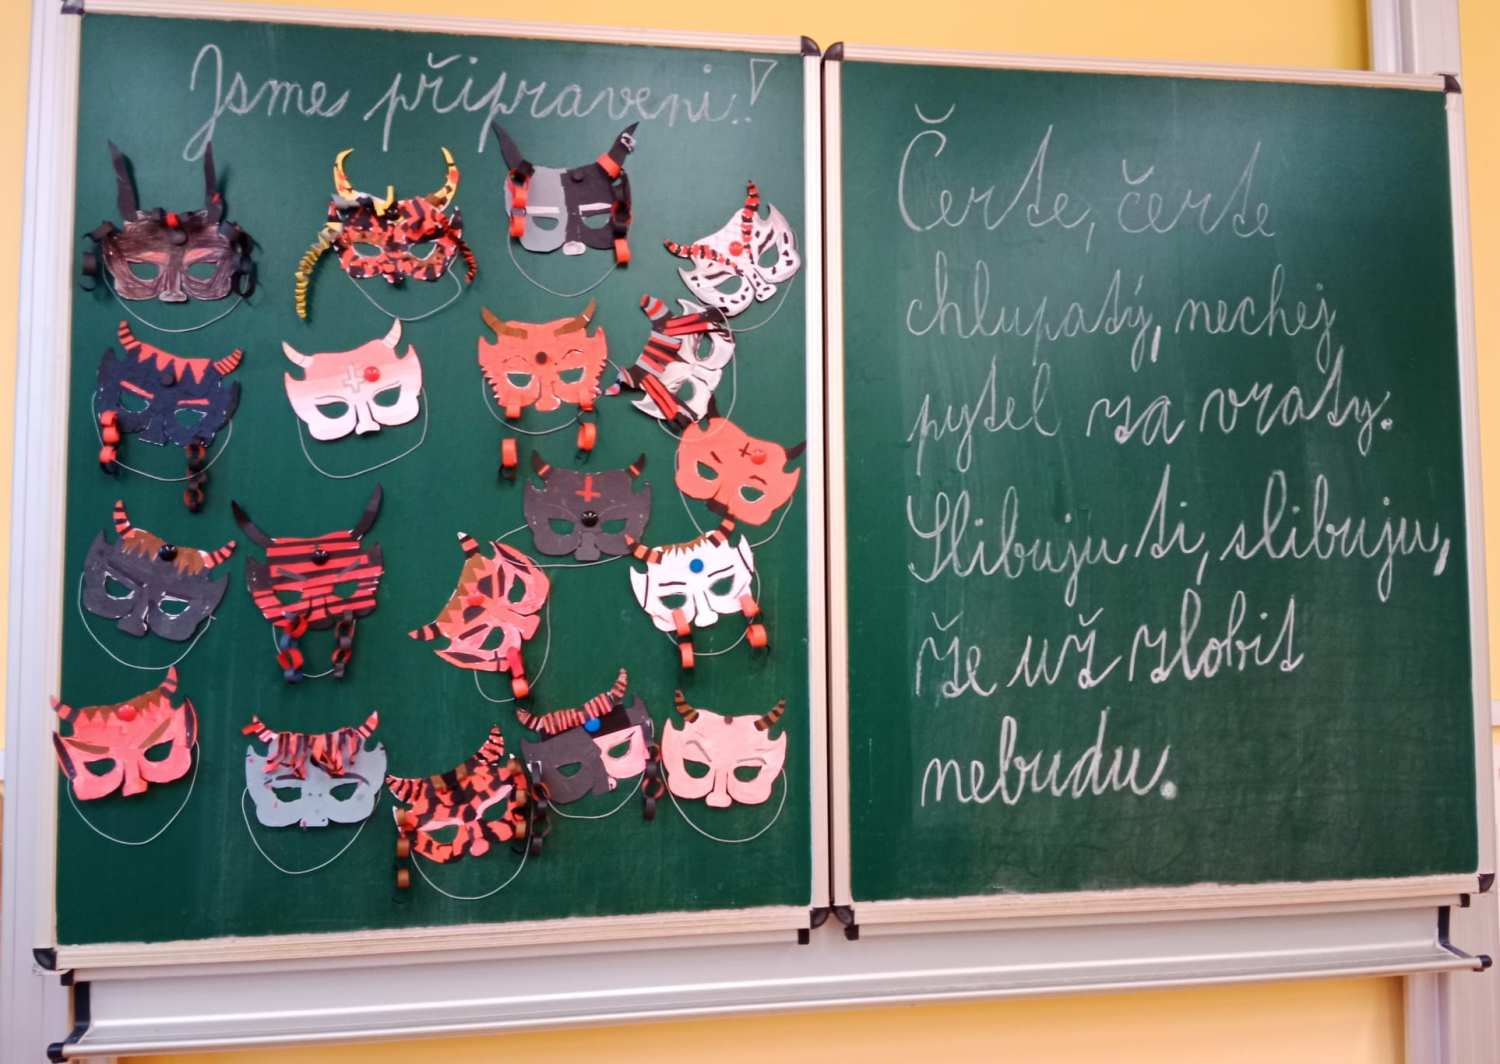 Jsme připraveni!
Čerte, čerte
chlupatý, nechej
pytel za vraty.
Slibuju ti, slibuju,
že už zlobit
nebudu.